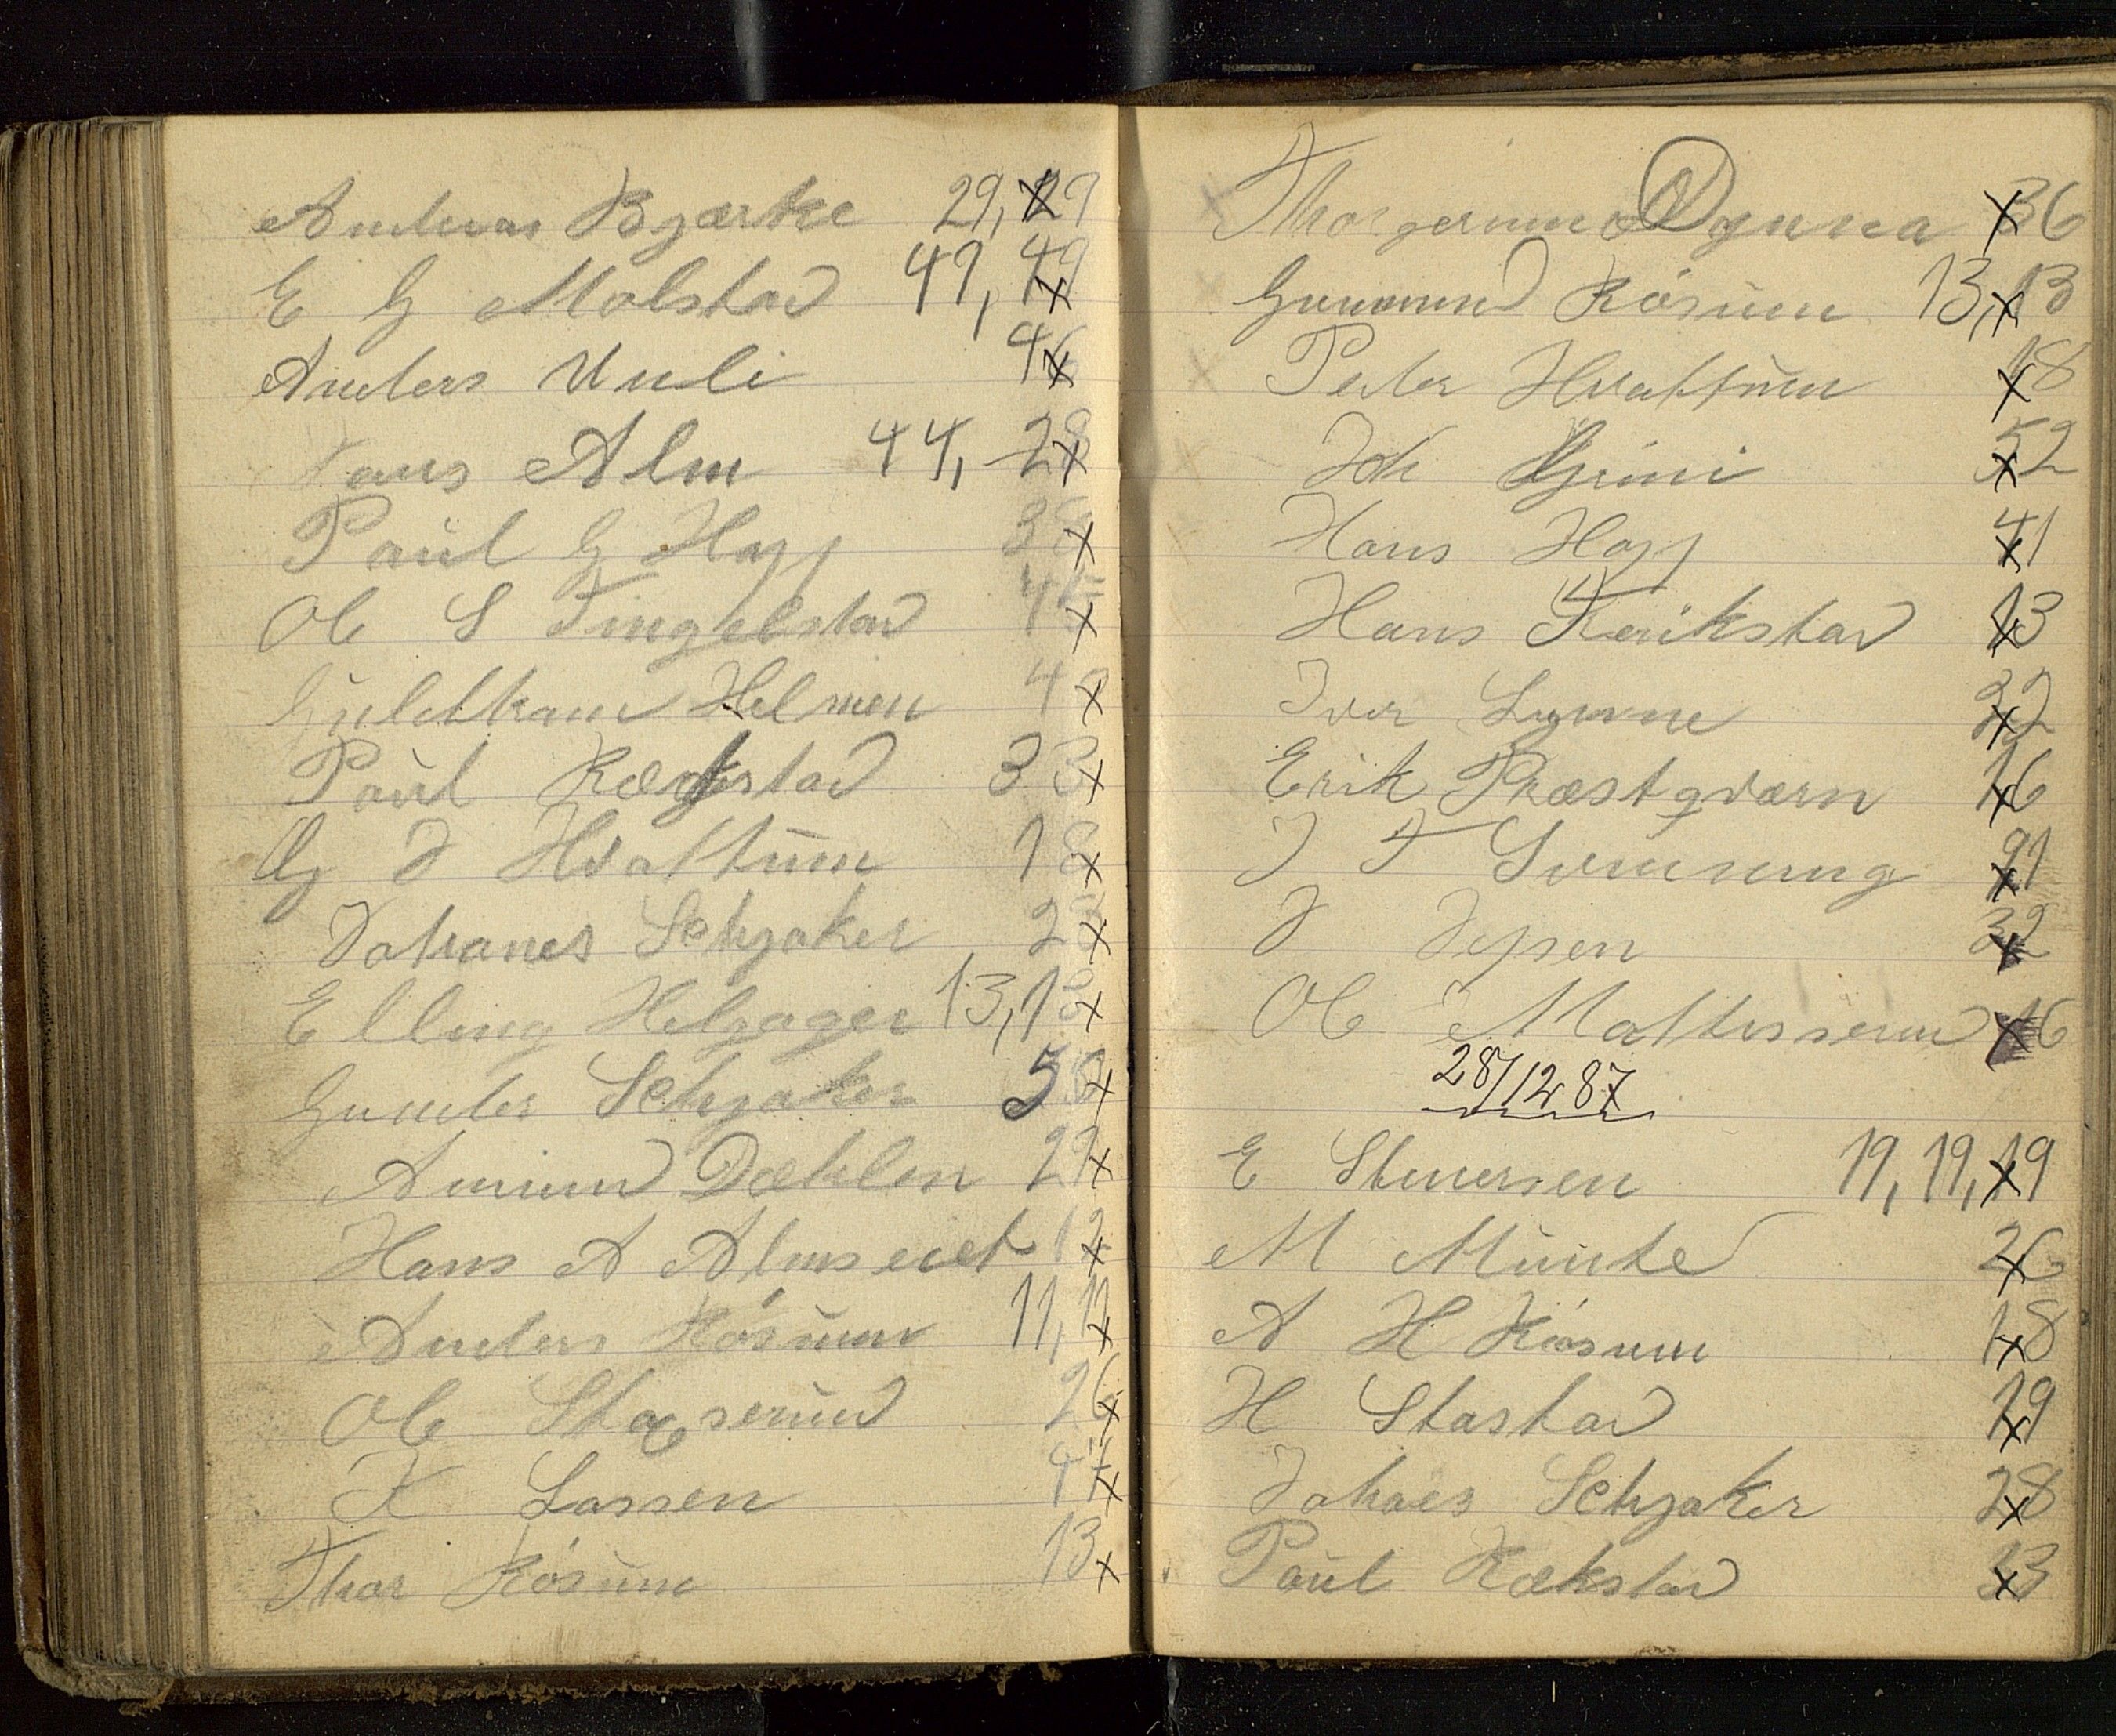 Andreas Bjærke 29, 29 x
E G Molstad 49, 49 x
Anders Unli 46 x
Hans Alm 44, 28 x
Paul G Hagg 38 x
Ole S Tingelstad 45 x
Guldbrand Helmen 4 x
Paul Rækstad 33 x
G J Hvattum 18 x
Johanes Schjaker 28 x
Elling Helgager 13, 13 x
Gunder Schjaker 58 x
Amund Dæhlen 29 x
Hans A Almseiet 12 x
Anders Røsum 11, 12 x
Ole Staxerud 26 x
K Lassen 47 x
Thor Røsum 13 x
x Thorgernmoe Dynna x 36
x Gudmund Røsum 13, x 13
x Peder Hvattum x 18
x Joh Grini x 52
x Hans Hagg x 41
Hans Rækstad x 13
Iver Lynne x 32
Erik Præstqværn x 16
J T Svensung x 91
J Jepsen x 32
Ole Mattisserud x 16
28/12 87
E Stenersen 19, 19, x 19
M Munte x 26
A H Røsum x 18
H Stastad x 19
Johaes Schjaker x 28
Paul Rækstad x 33